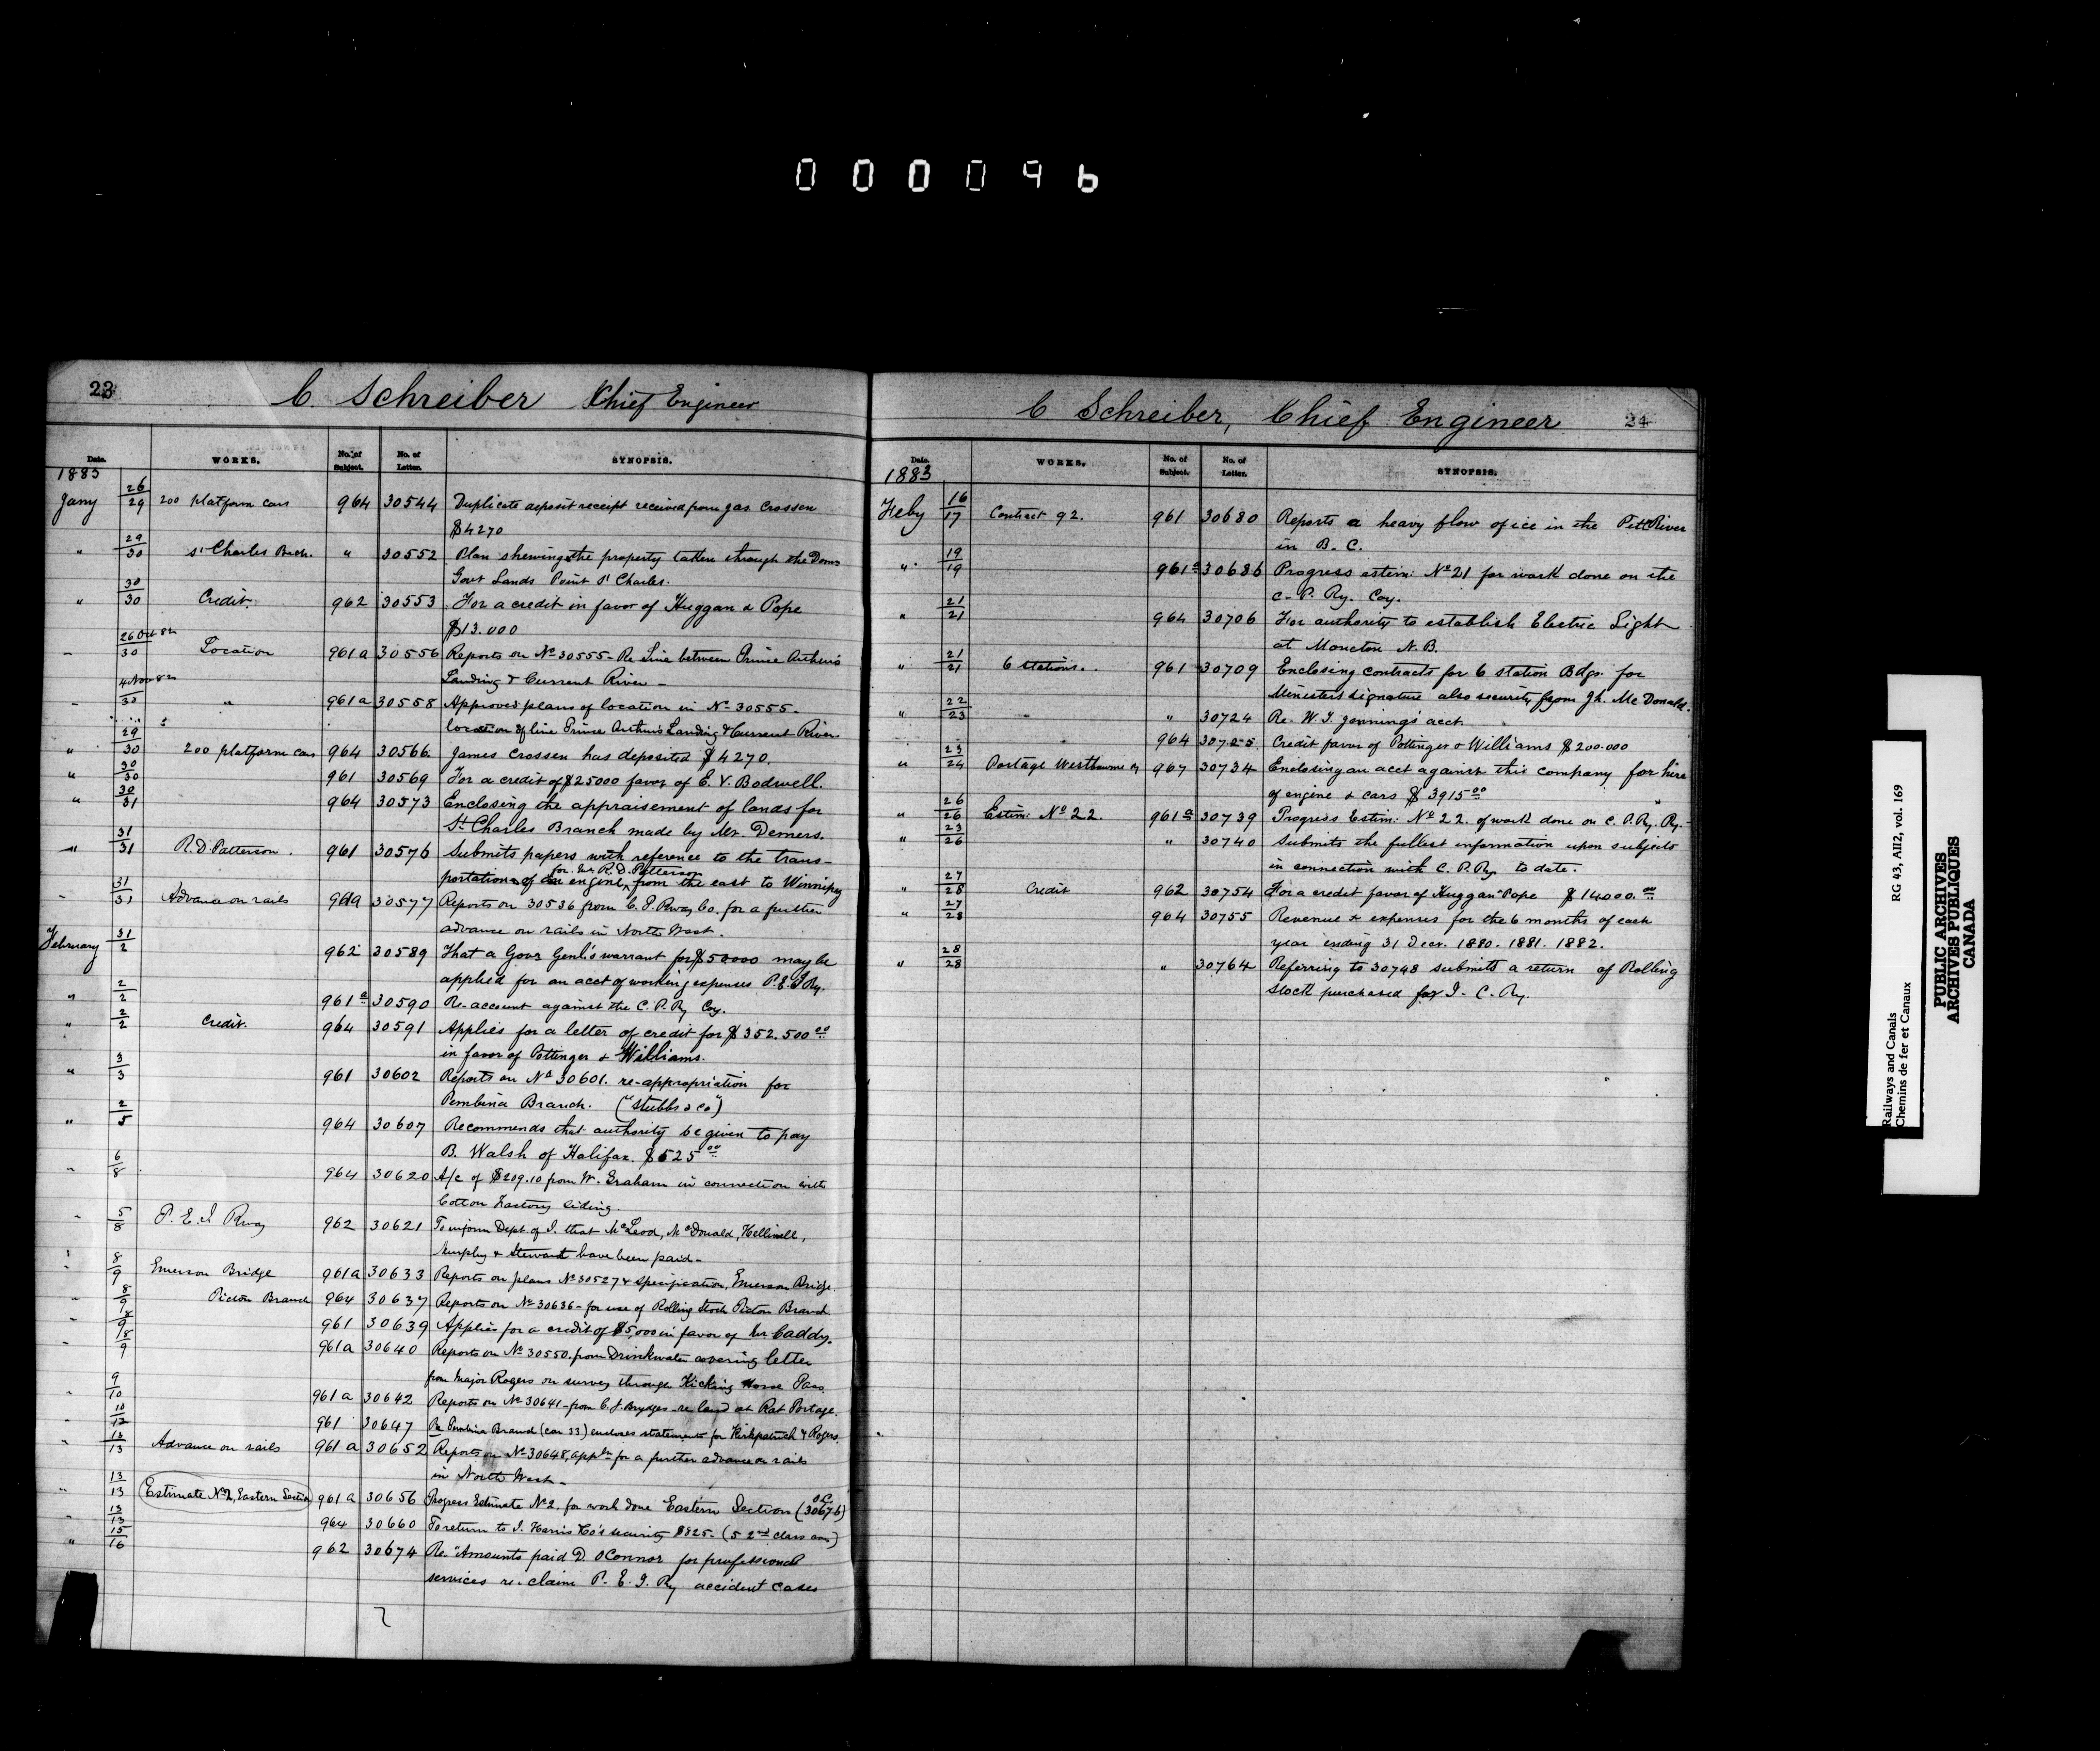 000096
23
C. Schreiber Chief Engineer
Date. WORKS. No. of Subject. No. of Letter. SYNOPSIS.
1883
Jany 26/29 200 platform cars 964 30544 Duplicate deposit receipt received from Jas Crossen
$4270
" 29/30 St Charles Bch. " 30552 Plan shewing the property taken through the Dom
Govt Lands Point St Charles.
" 30/30 Credit. 962 30553 For a credit in favor of Huggan & Pope
$13.000
" 26 Oct 82/30 Location 961a 30556 Reports on No 30555 - Re Line between Prince Arthur's
Landing & Current River -
" 4 Nov 82/30 " 961a 30558 Approves plans of location in No 30555.
location of line Prince Arthur's Landing & Current River.
" 29/30 200 platform cars 964 30566 James Crossen has deposited $4270.
" 30/30 961 30569 For a credit of $25000 favor of E. V. Bodwell.
" 30/31 964 30573 Enclosing the appraisement of lands for
St Charles Branch made by Mr. Demers.
" 31/31 R. D. Patterson. 961 30576 Submits papers with reference to the trans-
for Mr R. D. Patterson
portation of an engine, from the east to Winnipeg
" 31/31 Advance on rails 961a 30577 Reports on 30536 from C. P. Rway Co. for a further
advance on rails in North West.
February 31/2 962 30589 That a Govr Genl's warrant for $50000 may be
applied for on acct of working expenses P. E. I Ry.
" 2/2 961a 30590 Re-account against the C. P. Ry Coy.
" 2/2 Credit. 964 30591 Applies for a letter of credit for $352.500 00
in favor of Pottinger & Williams.
" 3/3 961 30602 Reports on No 30601. re-appropriation for
Pembina Branch. ("Stubbs & Co")
" 2/5 964 30607 Recommends that authority be given to pay
B. Walsh of Halifax. $525 00
" 6/8 964 30620 A/c of $209.10 from W. Graham in connection with
Cotton Factory Siding.
" 5/8 P. E. I Rway 962 30621 To inform Dept of J. that McLeod, McDonald, Helliwell,
Murphy & Steward have been paid -
" 8/9 Emerson Bridge 961a 30633 Reports on plans No 30527 & specification, Emerson Bridge.
" 8/9 Pictou Branch 964 30637 Reports on No 30636 - for use of Rolling Stock Pictou Branch
" 8/9 961 30639 Applies for a credit of $5,000 in favor of Mr Caddy.
" 8/9 961a 30640 Reports on No 30550. from Drinkwater covering letter
from Major Rogers on survey through Kicking Horse Pass.
" 9/10 961a 30642 Reports on No 30641 - from C. J. Brydges - re land at Rat Portage.
" 10/12 961 30647 Re Pembina Branch (con 33) encloses statements for Kirkpatrick & Rogers.
" 12/13 Advance on rails 961a 30652 Reports on No 30648, appln for a further advance on rails
in North West -
" 13/13 Estimate No 2, Eastern Section 961a 30656 Progress Estimate No 2. for work done Eastern Section (30676)
" 13/13 964 30660 To return to J. Harris & Co's security $825 - (5 2nd class cars)
" 15/16 962 30674 Re. "Amounts paid D. OConnor for professional
services re. claim P. E. I. Ry accident cases
24
C Schreiber, Chief Engineer
Date. WORKS. No. of Subject. No. of Letter. SYNOPSIS.
1883
Feby 16/17 Contract 92. 961 30680 Reports a heavy flow of ice in the Pitt River
in B. C.
" 19/19 961a 30686 Progress estim: No 21 for work done on the
C. P. Ry. Coy.
" 21/21 964 30706 For authority to establish Electric Light
at Moncton N. B.
" 21/21 6 stations. 961 30709 Enclosing contracts for 6 station Bdgs. for
Minister's signature also security from Jh. McDonald.
" 22/23 " " 30724 Re. W. T. Jennings acct
964 30725 Credit favor of Pottinger & Williams $200.000
" 23/24 Portage Westbourne Ry 967 30734 Enclosing an acct against this company for hire
of engine & cars $3915 00
" 26/26 Estim: No 22. 961a 30739 Progress Estim: No 22. of work done on C. P. Ry. Ry.
" 23/26 " 30740 Submits the fullest information upon subjects
in connection with C. P. Ry. to date.
" 27/28 Credit 962 30754 For a credit favor of Huggan & Pope $14000.00
" 27/28 964 30755 Revenue & expenses for the 6 months of each
year ending 31 Decr. 1880. 1881. 1882.
" 28/28 " 30764 Referring to 30748 submits a return of Rolling
Stock purchased for I. C. Ry.
Railways and Canals
Chemins de fer et Canaux
RG 43, AII2, vol. 169
PUBLIC ARCHIVES
ARCHIVES PUBLIQUES
CANADA